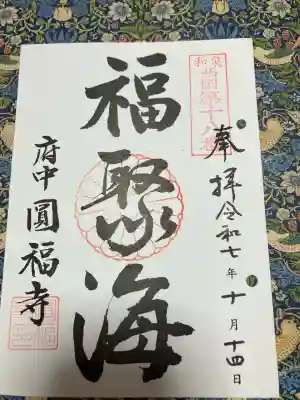 和泉
西国第十八番
奉拝 令和七年十月十四日
福聚海
府中 圓福寺